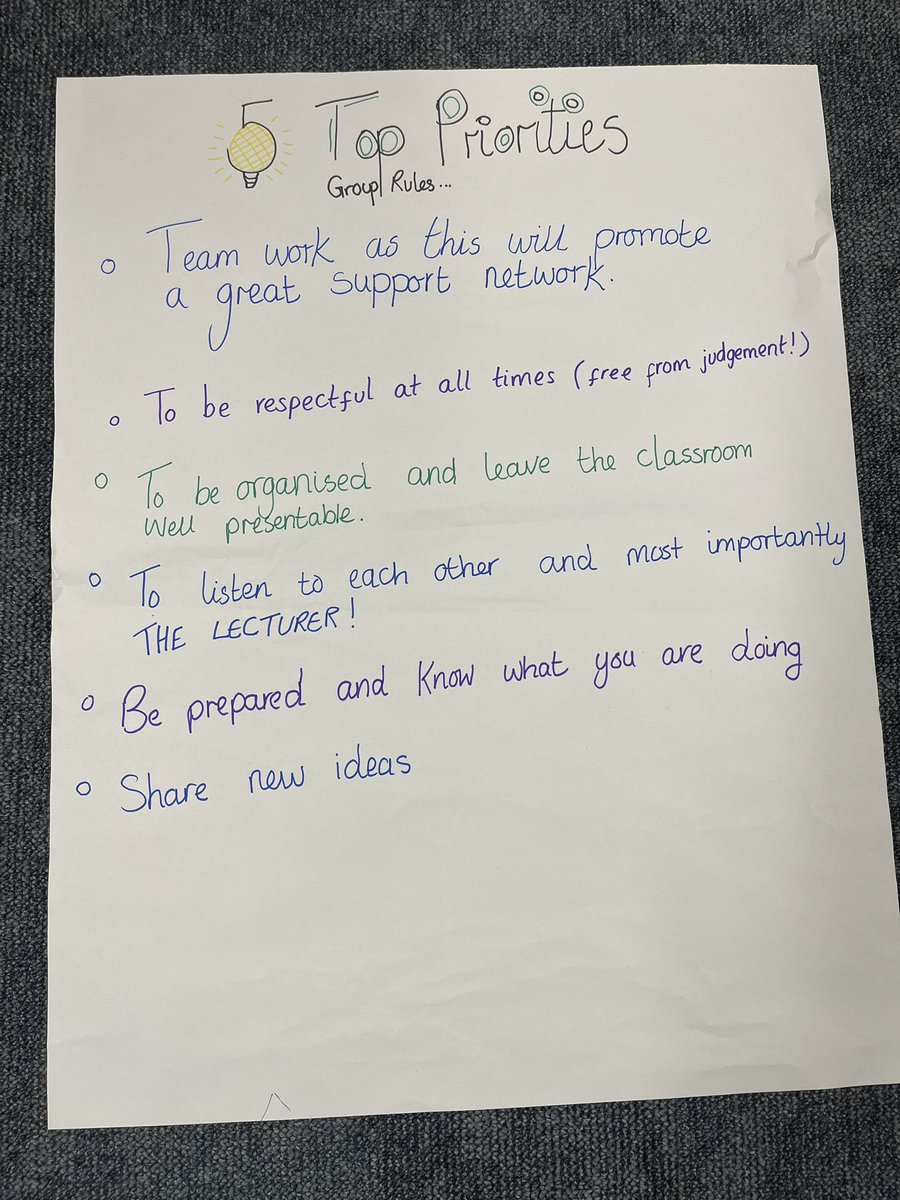 5 Top Priorities
Group Rules...
o Team work as this will promote
a great support network.
o To be respectful at all times (free from judgement!)
o To be organised and leave the classroom
well presentable.
o To listen to each other and most importantly
THE LECTURER!
o Be prepared and know what you are doing
o Share new ideas